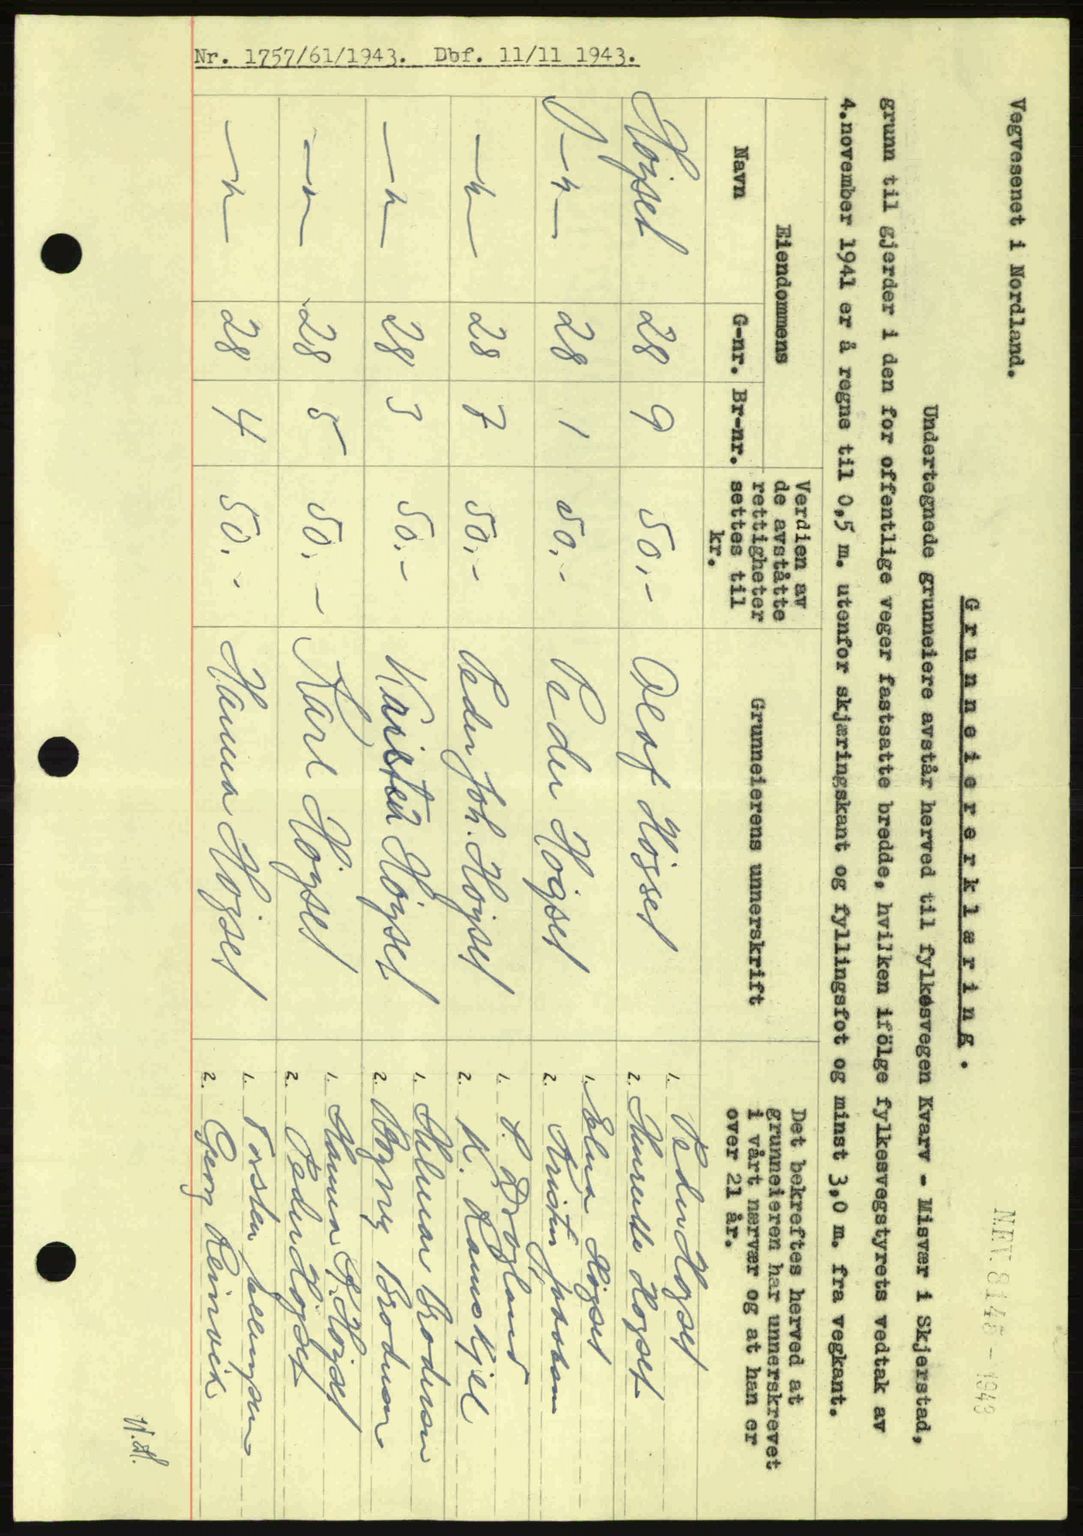 Nr. 1757/61/1943. Dbf. 11/11 1943.
Vegvesenet i Nordland.
N.EV. 8146 - 1943
Grunneiererklæring.
Undertegnede grunneiere avstår herved til fylkesvegen Kvarv - Misvær i Skjerstad,
grunn til gjerder i den for offentlige veger fastsatte bredde, hvilken ifölge fylkesvegstyrets vedtak av
4.november 1941 er å regne til 0,5 m. utenfor skjæringskant og fyllingsfot og minst 3,0 m. fra vegkant.
Eiendommens
Navn G-nr. Br-nr.
Verdien av
de avståtte
rettigheter
settes til
kr.
Grunneierens unnerskrift
Det bekreftes herved at
grunneieren har unnerskrevet
i vårt nærvær og at han er
over 21 år.
Höjset 28 9 50,- Olaf Höjset
1. Peder Höjset
2. Anrette Höjset
-"- 28 1 50,- Peder Höjset
1. Elna Höjset
2. Kristin
-"- 28 7 50,- Peder Joh. Höjset
1. P. Drogland
2. K. Ramskjel
-"- 28 3 50,- Karsten Höjset
1. Helmar Brodersen
2. Magny Brodersen
-"- 28 5 50,- Karl Höjset
1. Hanna P. Höjset
2. Peder Höjset
-"- 28 4 50,- Hanna Höjset
1. Torsten
2. Georg Leinvik
W.H.